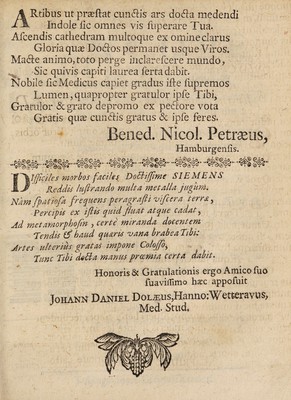 ARtibus ut præstat cunctis ars docta medendi
Indole sic omnes vis superare Tua.
Ascendis cathedram multoque ex omine clarus
Gloria quæ Doctos permanet usque Viros.
Macte animo, toto perge inclarescere mundo,
Sic quivis capiti laurea serta dabit.
Nobile sic Medicus capiet gradus iste supremos
Lumen, quapropter gratulor ipse Tibi,
Gratulor & grato depromo ex pectore vota
Gratis quæ cunctis gratus & ipse feres.
Bened. Nicol. Petræus,
Hamburgensis.
DIfficiles morbos faciles Doctissime SIEMENS
Reddis lustrando multa metalla jugûm.
Nàm spatiosa frequens peragrasti viscera terræ,
Percipis ex istis quid fluat atque cadat,
Ad metamorphosin, certè miranda docentem
Tendis & haud quæris vana brabea Tibi:
Artes ulteriùs gratas impone Colosso,
Tunc Tibi docta manus præmia certa dabit.
Honoris & Gratulationis ergo Amico suo
suavissimo hæc apposuit
JOHANN DANIEL DOLÆUS, Hanno: Wetteravus,
Med. Stud.